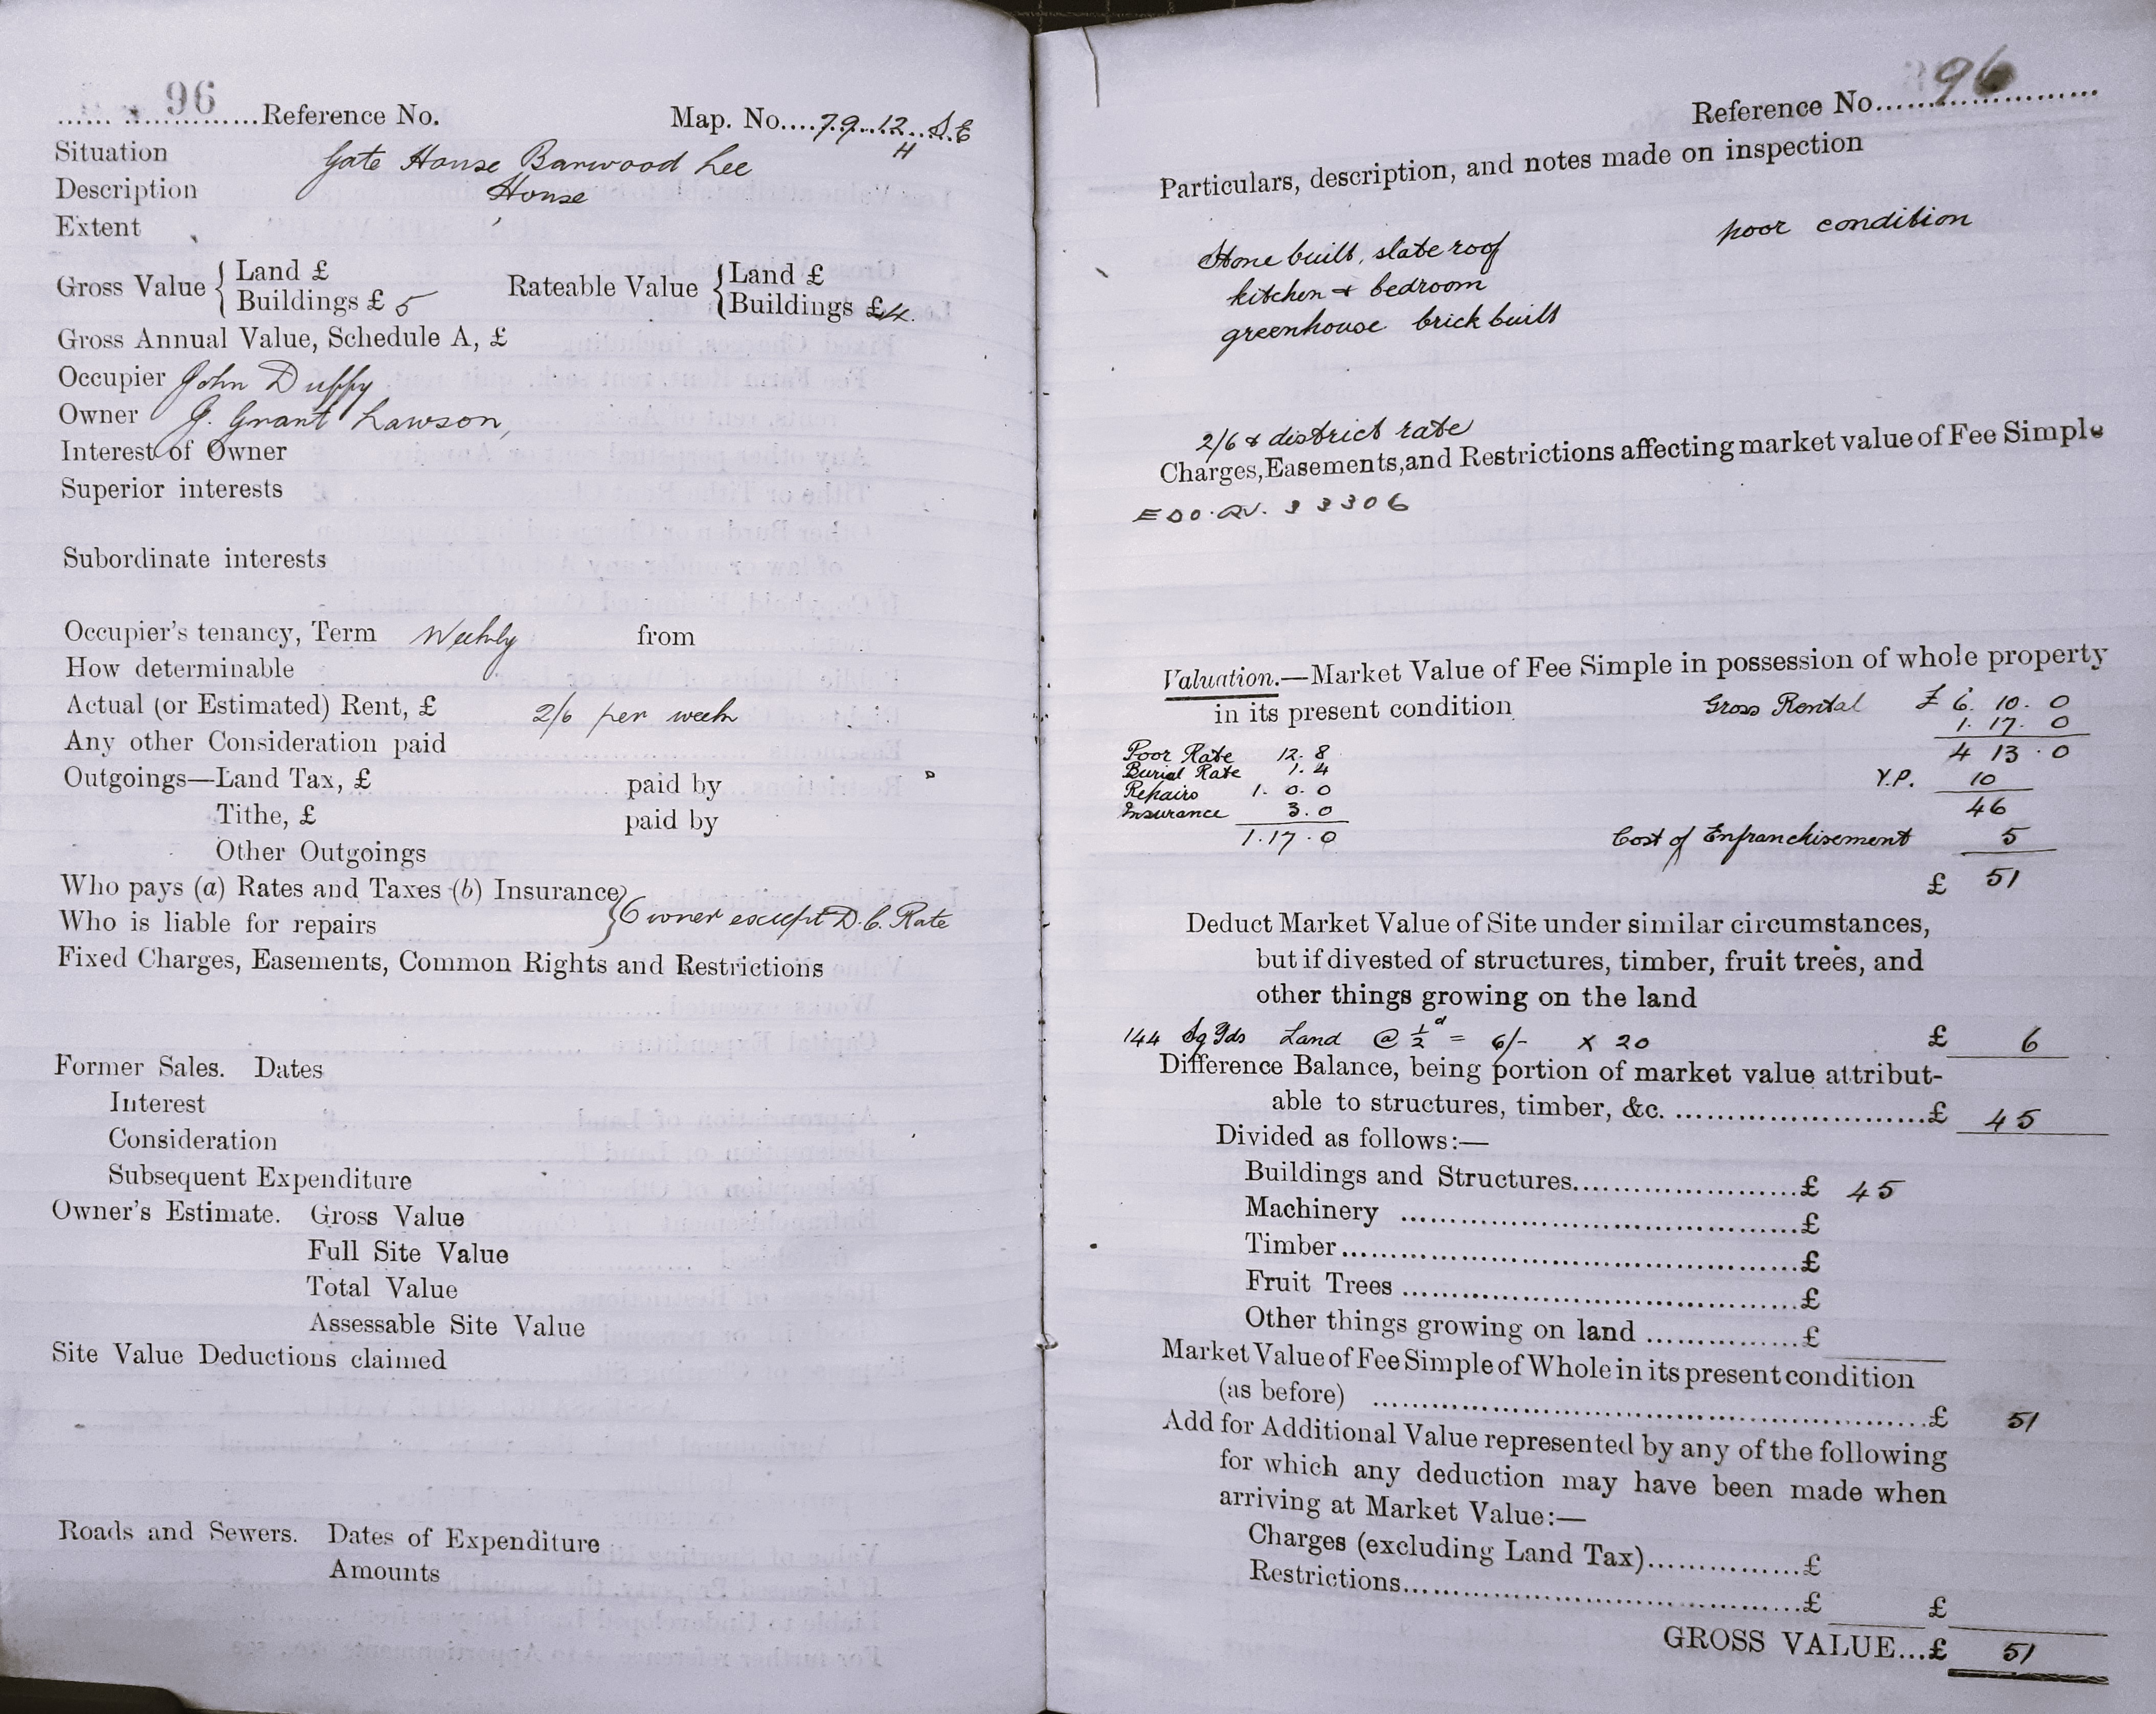 96 Reference No. Map. No. 79.12 S.E
H
Situation Gate House Barwood Lee
Description House
Extent
Gross Value { Land £ Rateable Value { Land £
Buildings £ 5 Buildings £ 4.
Gross Annual Value, Schedule A, £
Occupier John Duffy
Owner J. Grant Lawson,
Interest of Owner
Superior interests
Subordinate interests
Occupier's tenancy, Term Weekly from
How determinable
Actual (or Estimated) Rent, £ 2/6 per week
Any other Consideration paid
Outgoings—Land Tax, £ paid by
Tithe, £ paid by
Other Outgoings
Who pays (a) Rates and Taxes (b) Insurance
Who is liable for repairs } Owner except D.C. Rate
Fixed Charges, Easements, Common Rights and Restrictions
Former Sales. Dates
Interest
Consideration
Subsequent Expenditure
Owner's Estimate. Gross Value
Full Site Value
Total Value
Assessable Site Value
Site Value Deductions claimed
Roads and Sewers. Dates of Expenditure
Amounts
Reference No. 96
Particulars, description, and notes made on inspection
poor condition
Stone built, slate roof
kitchen & bedroom
greenhouse brick built
2/6 & district rate
Charges, Easements, and Restrictions affecting market value of Fee Simple
33306
Valuation.—Market Value of Fee Simple in possession of whole property
in its present condition Gross Rental £ 6. 10. 0
1. 17. 0
Poor Rate 12. 8 4 13. 0
Burial Rate 1. 4 Y.P. 10
Repairs 1. 0. 0 46
Insurance 3. 0 Cost of Enfranchisement 5
1. 17. 0 £ 51
Deduct Market Value of Site under similar circumstances,
but if divested of structures, timber, fruit trees, and
other things growing on the land
144 Sq Yds Land @ ½d = 6/- x 20 £ 6
Difference Balance, being portion of market value attribut-
able to structures, timber, &c. £ 45
Divided as follows:—
Buildings and Structures £ 45
Machinery £
Timber £
Fruit Trees £
Other things growing on land £
Market Value of Fee Simple of Whole in its present condition
(as before) £ 51
Add for Additional Value represented by any of the following
for which any deduction may have been made when
arriving at Market Value:—
Charges (excluding Land Tax) £
Restrictions £ £
GROSS VALUE...£ 51